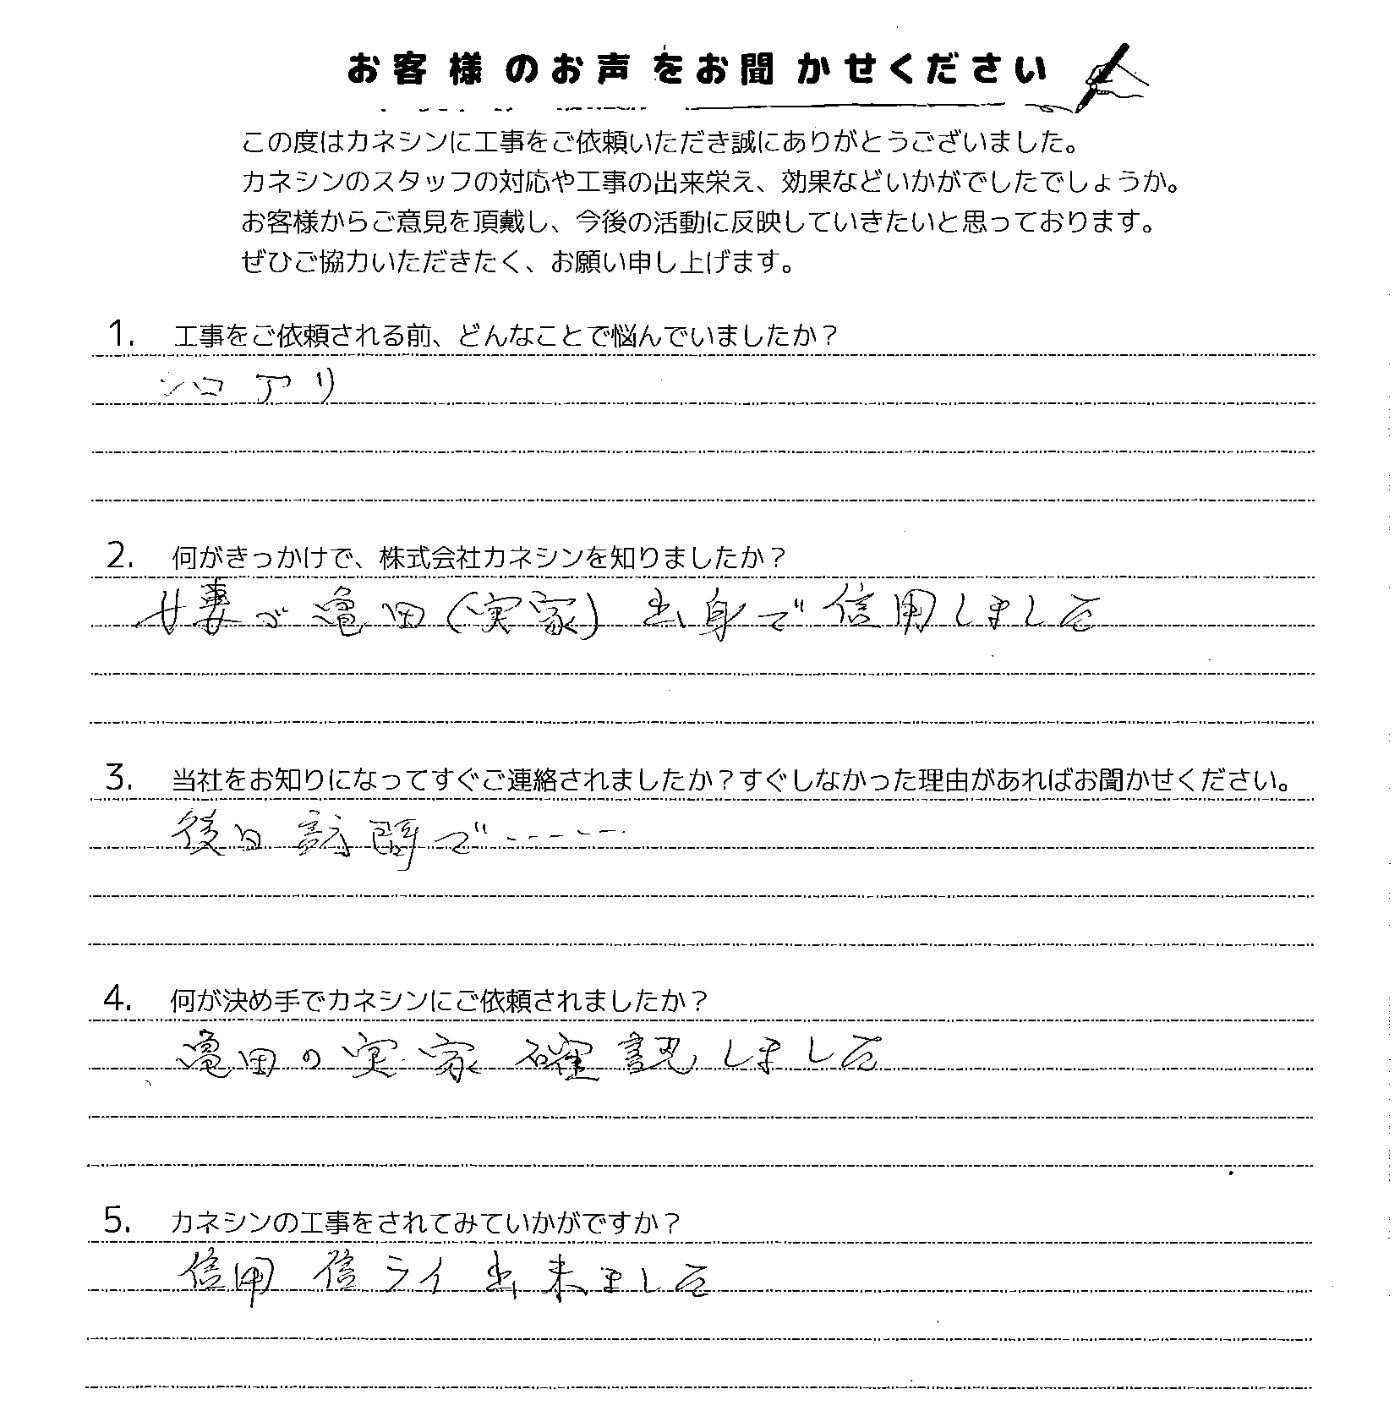 お客様のお声をお聞かせください
この度はカネシンに工事をご依頼いただき誠にありがとうございました。
カネシンのスタッフの対応や工事の出来栄え、効果などいかがでしたでしょうか。
お客様からご意見を頂戴し、今後の活動に反映していきたいと思っております。
ぜひご協力いただきたく、お願い申し上げます。
1. 工事をご依頼される前、どんなことで悩んでいましたか？
シロアリ
2. 何がきっかけで、株式会社カネシンを知りましたか？
妻が亀田(実家)出身で信用しました
3. 当社をお知りになってすぐご連絡されましたか？すぐしなかった理由があればお聞かせください。
後日訪問で------
4. 何が決め手でカネシンにご依頼されましたか？
亀田の実家確認しました
5. カネシンの工事をされてみていかがですか？
信用信ライ出来ました